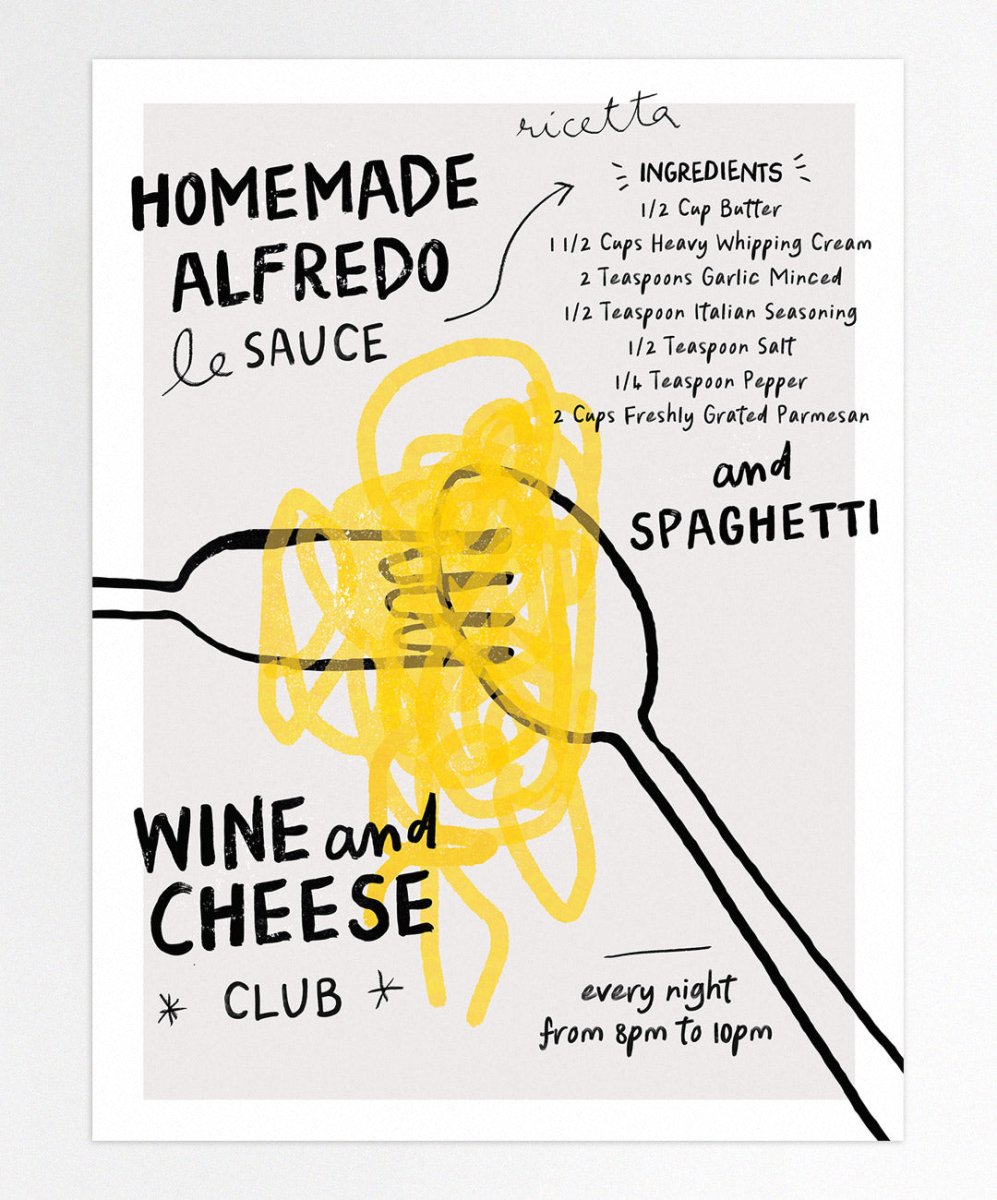 ricetta
HOMEMADE
ALFREDO
le SAUCE
INGREDIENTS
1/2 Cup Butter
1 1/2 Cups Heavy Whipping Cream
2 Teaspoons Garlic Minced
1/2 Teaspoon Italian Seasoning
1/2 Teaspoon Salt
1/4 Teaspoon Pepper
2 Cups Freshly Grated Parmesan
and
SPAGHETTI
WINE and
CHEESE
* CLUB *
every night
from 8pm to 10pm